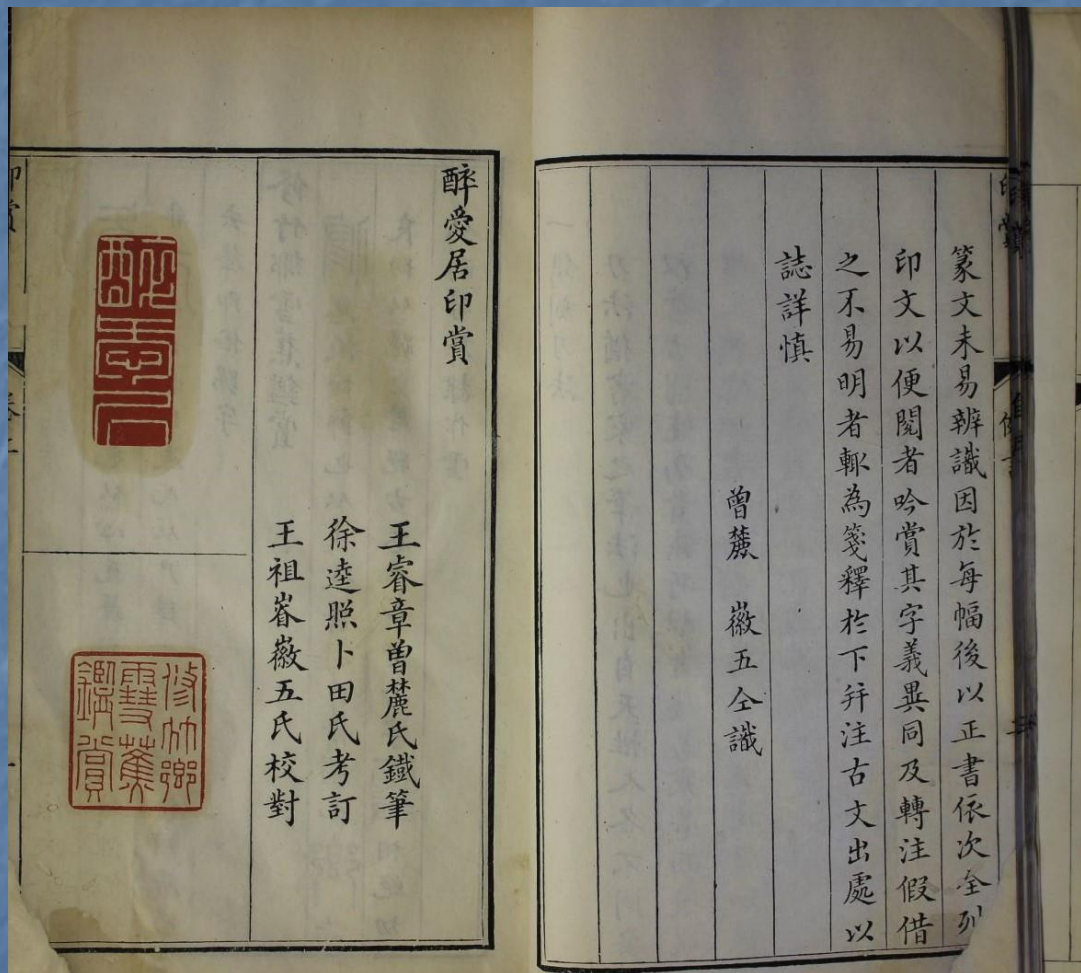 篆文未易辨識因於每幅後以正書依次仝列
印文以便閱者吟賞其字義異同及轉注假借
之不易明者輙為箋釋於下并注古文出處以
誌詳慎
曾麓　徽五仝識
醉愛居印賞
王睿章曾麓氏鐵筆
徐逵照卜田氏考訂
王祖眘徽五氏校對
修竹鄉
雪蕉
鑑賞